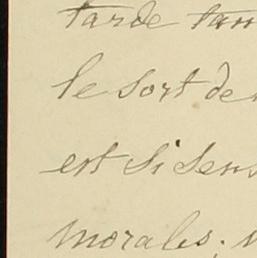 tarde tan
le sort de
est si sens
morales,